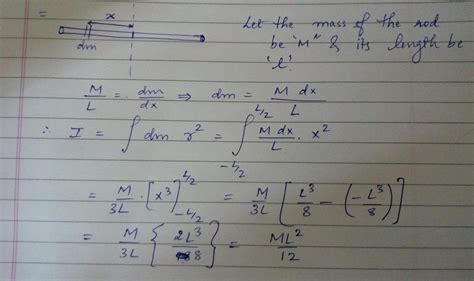 =
x
dm
Let the mass of the rod
be "M" & its length be
'l'.
M/L = dm/dx ⇒ dm = M dx/L
∴ I = ∫ dm r² = ∫_{-L/2}^{L/2} M dx/L · x²
= M/3L · [x³]_{-L/2}^{L/2} = M/3L [L³/8 - (-L³/8)]
= M/3L {2L³/8} = ML²/12